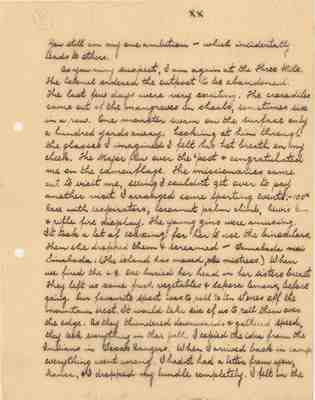 XX
You still are my one ambition - which incidentally
leads to others.
As you may suspect, I am again at the Three Mile.
The Colonel ordered the outpost to be abandoned.
The last few days were very exciting. The crocodiles
came out of the mangroves in shoals, sometimes six
in a row. One monster swam on the surface only
a hundred yards away. Looking at him through
the glasses I imagined I felt his hot breath on my
cheek. The Major flew over the post & congratulated
me on the camouflage. The missionaries came
out to visit me, seeing I couldn't get over to pay
another visit I arranged some sporting events - 100x
race with respirators, coconut pine climb,
& rifle fire display. The young girls were amusing.
It took a lot of coaxing for her to use the binoculars,
then she dropped them & screamed -
(The island has moved, mistress) When
we fired the she buried her head in her sisters breast
They left us some fresh vegetables & before
going. Our favourite sport was to roll stones off the
mountain crest. It would take six of us to roll them over
the edge. As they thundered downwards & gathered speed,
they took everything in their path. I copied the idea from the
Indians in Texas Rangers. When I arrived back in camp
everything went wrong. I hadn't had a letter from you,
& I dropped my bundle completely. I felt on the